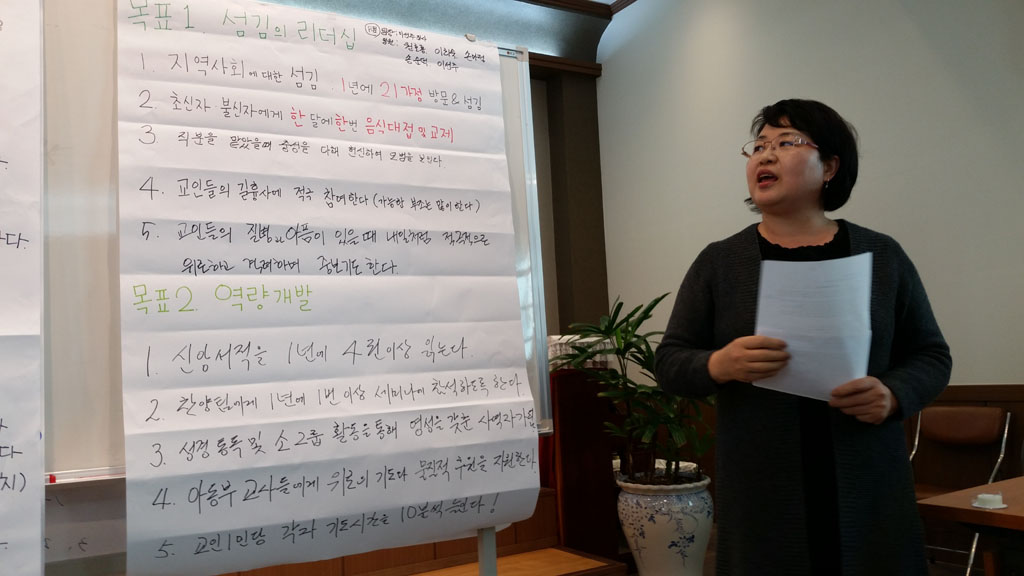 목표1. 섬김의 리더십
1. 지역사회에 대한 섬김. 1년에 21가정 방문&섬김
2. 초신자 불신자에게 한 달에 한번 음식대접 및 교제
3. 직분을 맡았을때 충성을 다해 헌신하여 모범을 보인다.
4. 교인들의 길흉사에 적극 참여한다 (가능한 부조는 많이 한다)
5. 교인들의 질병과 아픔이 있을 때 내일처럼 적극적으로
위로하고 격려하며 중보기도 한다.
목표2. 역량개발
1. 신앙서적을 1년에 4권이상 읽는다.
2. 찬양팀에게 1년에 1번 이상 세미나에 참석하도록 한다.
3. 성경통독 및 소그룹 활동을 통해 영성을 갖춘 사역자가 됨
4. 아동부 교사들에게 위로의 기도와 물질적 후원을 지원한다
5. 교인1인당 각각 기도시간을 10분씩 한다!
다.
다
치)